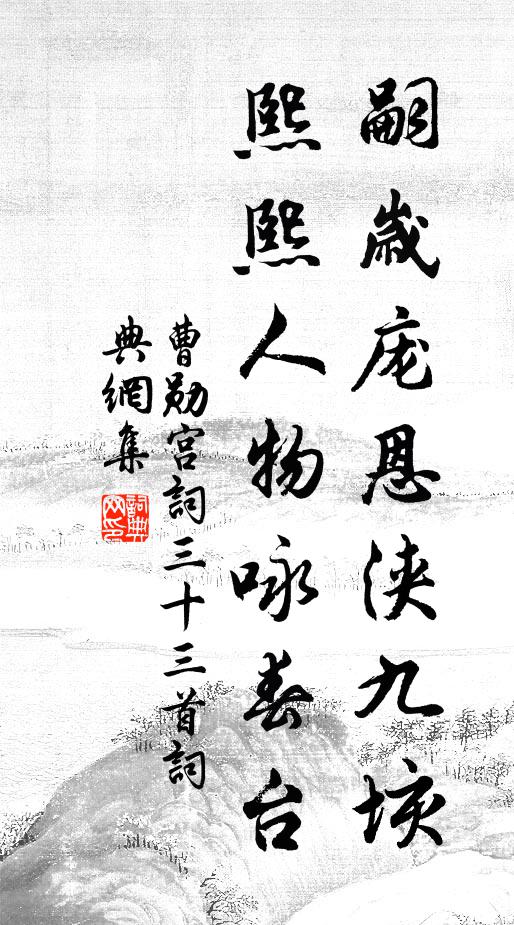 嗣歲庬恩浹九垓
熙熙人物咏春台
曹勛宮詞三十三首詞
典網集
詞典網印